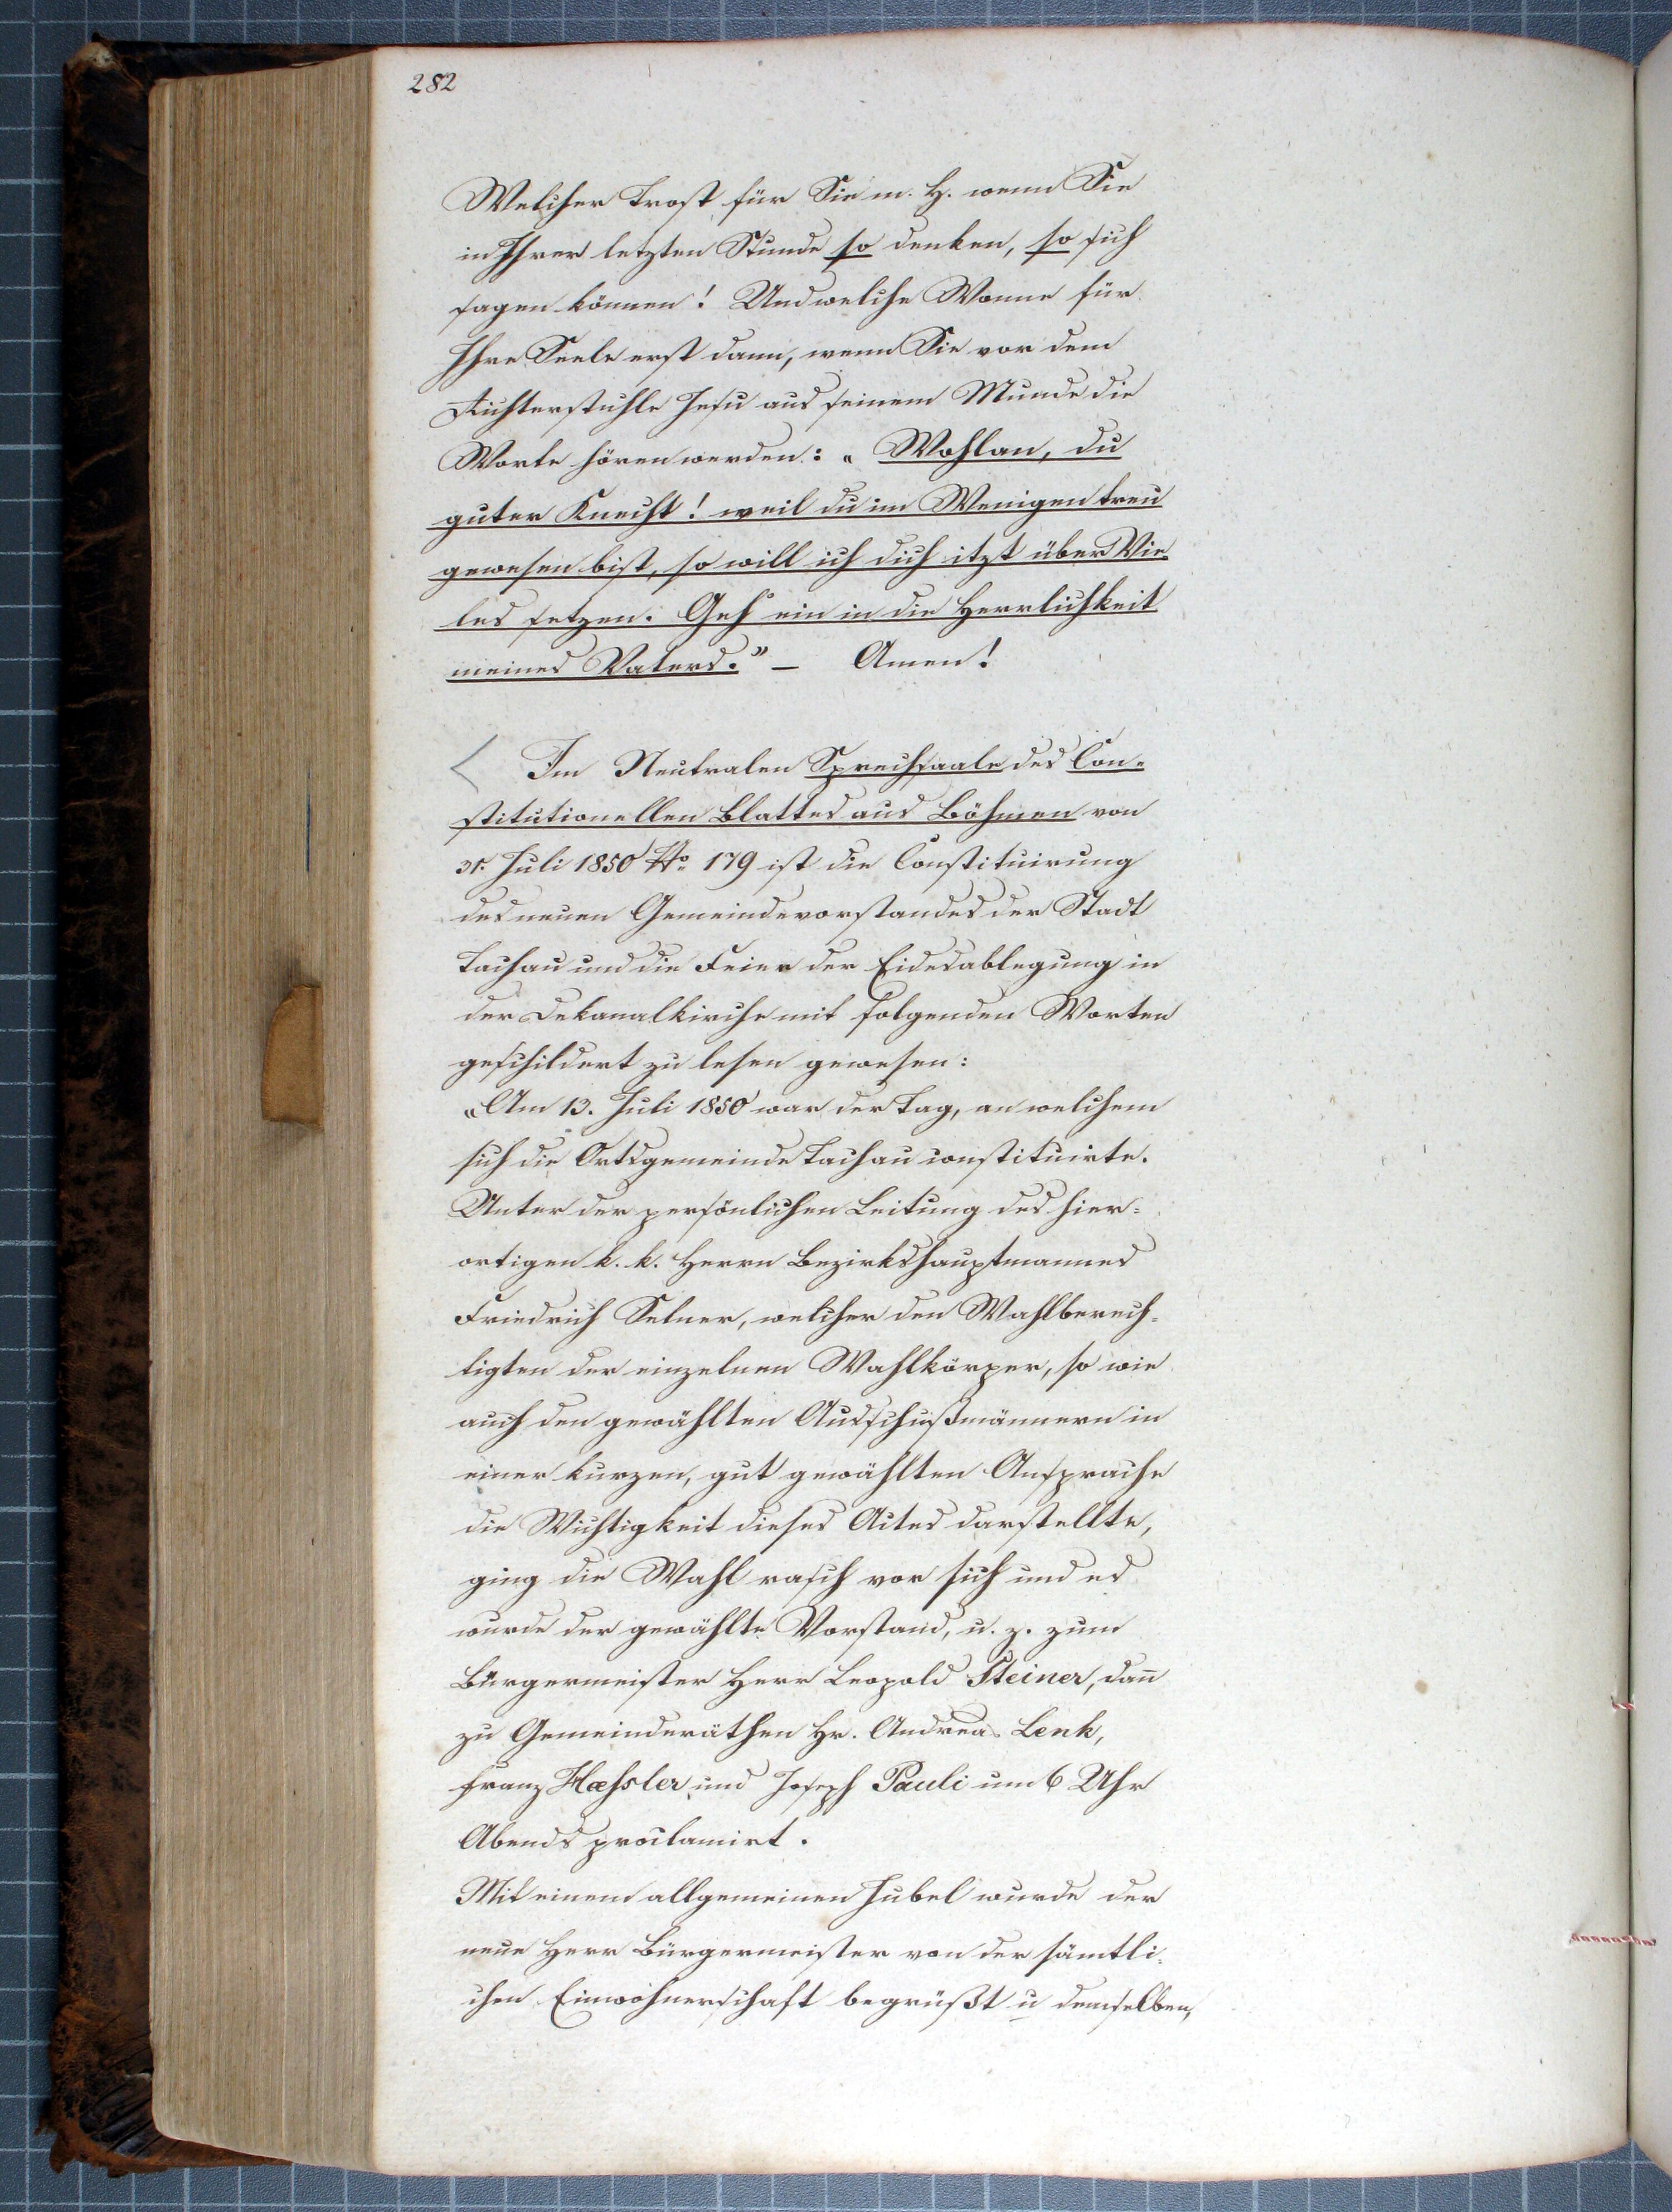 282
Welcher Trost für Sie m. H. wenn Sie
in Ihrer letzten Stunde so denken, so sich
sagen können! Und welche Wonne für
Ihre Seele erst dann, wenn Sie vor dem
Richterstuhle Jesu aus seinem Munde die
Worte hören werden: „Wohlan, du
guter Knecht! weil du im Wenigen treu
gewesen bist, so will ich dich itzt über Vie
les setzen. Geh' ein in die Herrlichkeit
meines Vaters." – Amen!
Im Neutralen Sprechsaale des Con-
stitutionellen Blattes aus Böhmen von
31. Juli 1850 No 179 ist die Constituirung
des neuen Gemeindevorstandes der Stadt
Tachau und die Feier der Eidesablegung in
der Dekanalkirche mit folgenden Worten
geschildert zu lesen gewesen:
„Am 13. Juli 1850 war der Tag, an welchem
sich die Ortsgemeinde Tachau constituirte.
Unter der persönlichen Leitung des hier-
ortigen k. k. Herrn Bezirkshauptmannes
Friedrich Selner, welcher den Wahlberech-
tigten der einzelnen Wahlkörper, so wie
auch den gewählten Ausschußmännern in
einer kurzen, gut gewählten Ansprache
die Wichtigkeit dieses Actes darstellte,
ging die Wahl rasch vor sich und es
wurde der gewählte Vorstand, u. z. zum
Bürgermeister Herr Leopold Steiner, dan̄
zu Gemeinderäthen Hr. Andreas Lenk,
Franz Haeſsler und Joseph Pauli um 6 Uhr
Abends proclamirt.
Mit einem allgemeinen Jubel wurde der
neue Herr Bürgermeister von der sämtli-
chen Einwohnerschaft begrüßt u demselben,